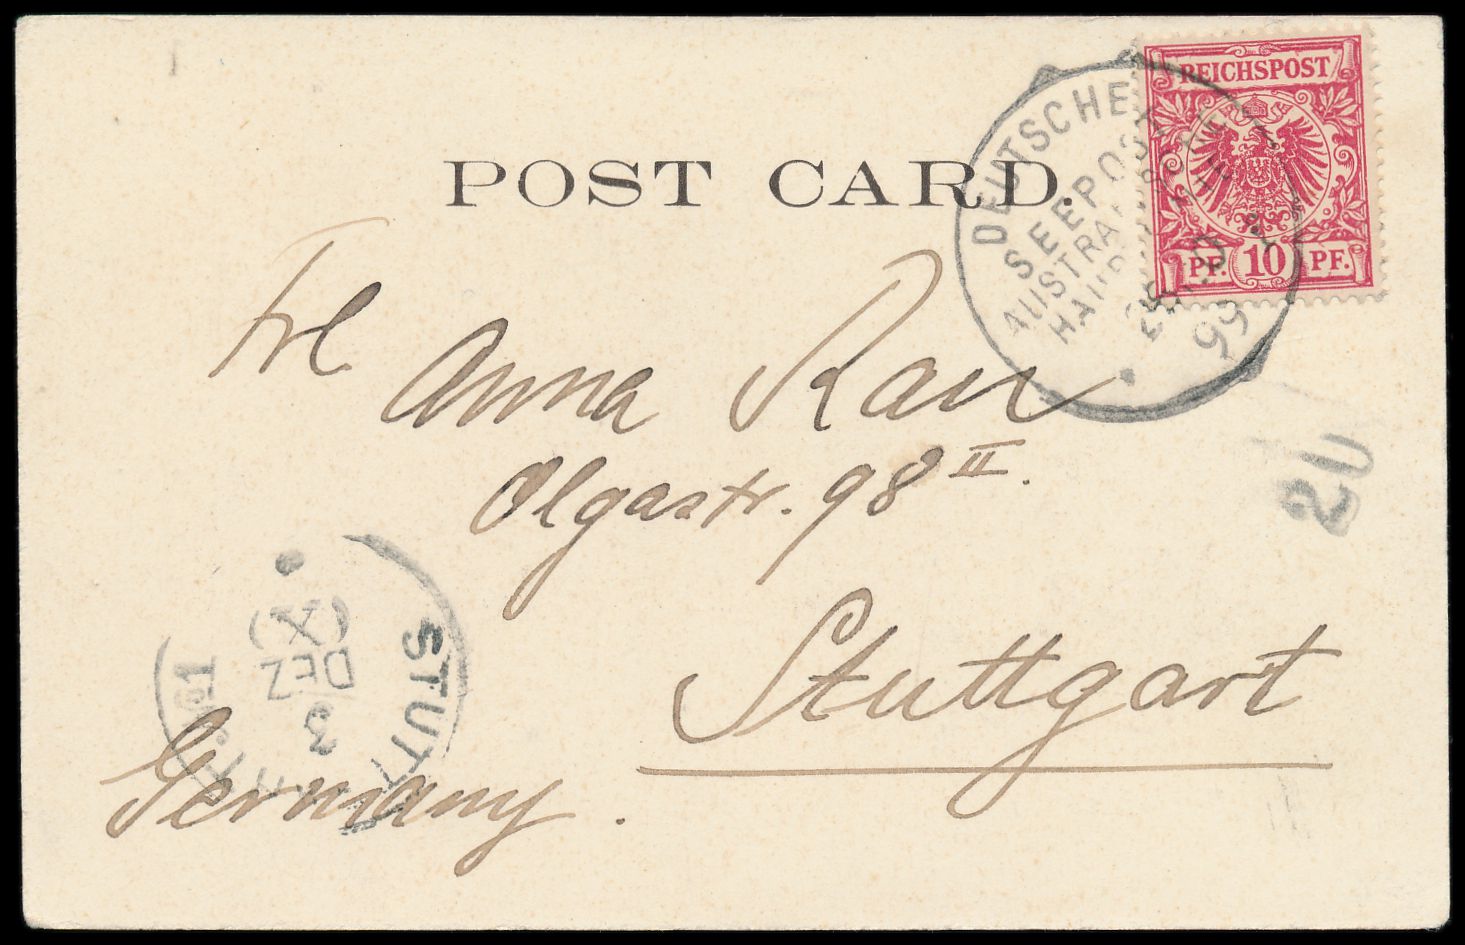 REICHSPOST
PF. 10 PF.
DEUTSCHE
SEEPOST
AUSTRA
HAUP
99
POST CARD.
Frl
Anna Rau
Olgastr. 98 II.
20
Stuttgart
Germany.
STUTT
(X)
DEZ
3